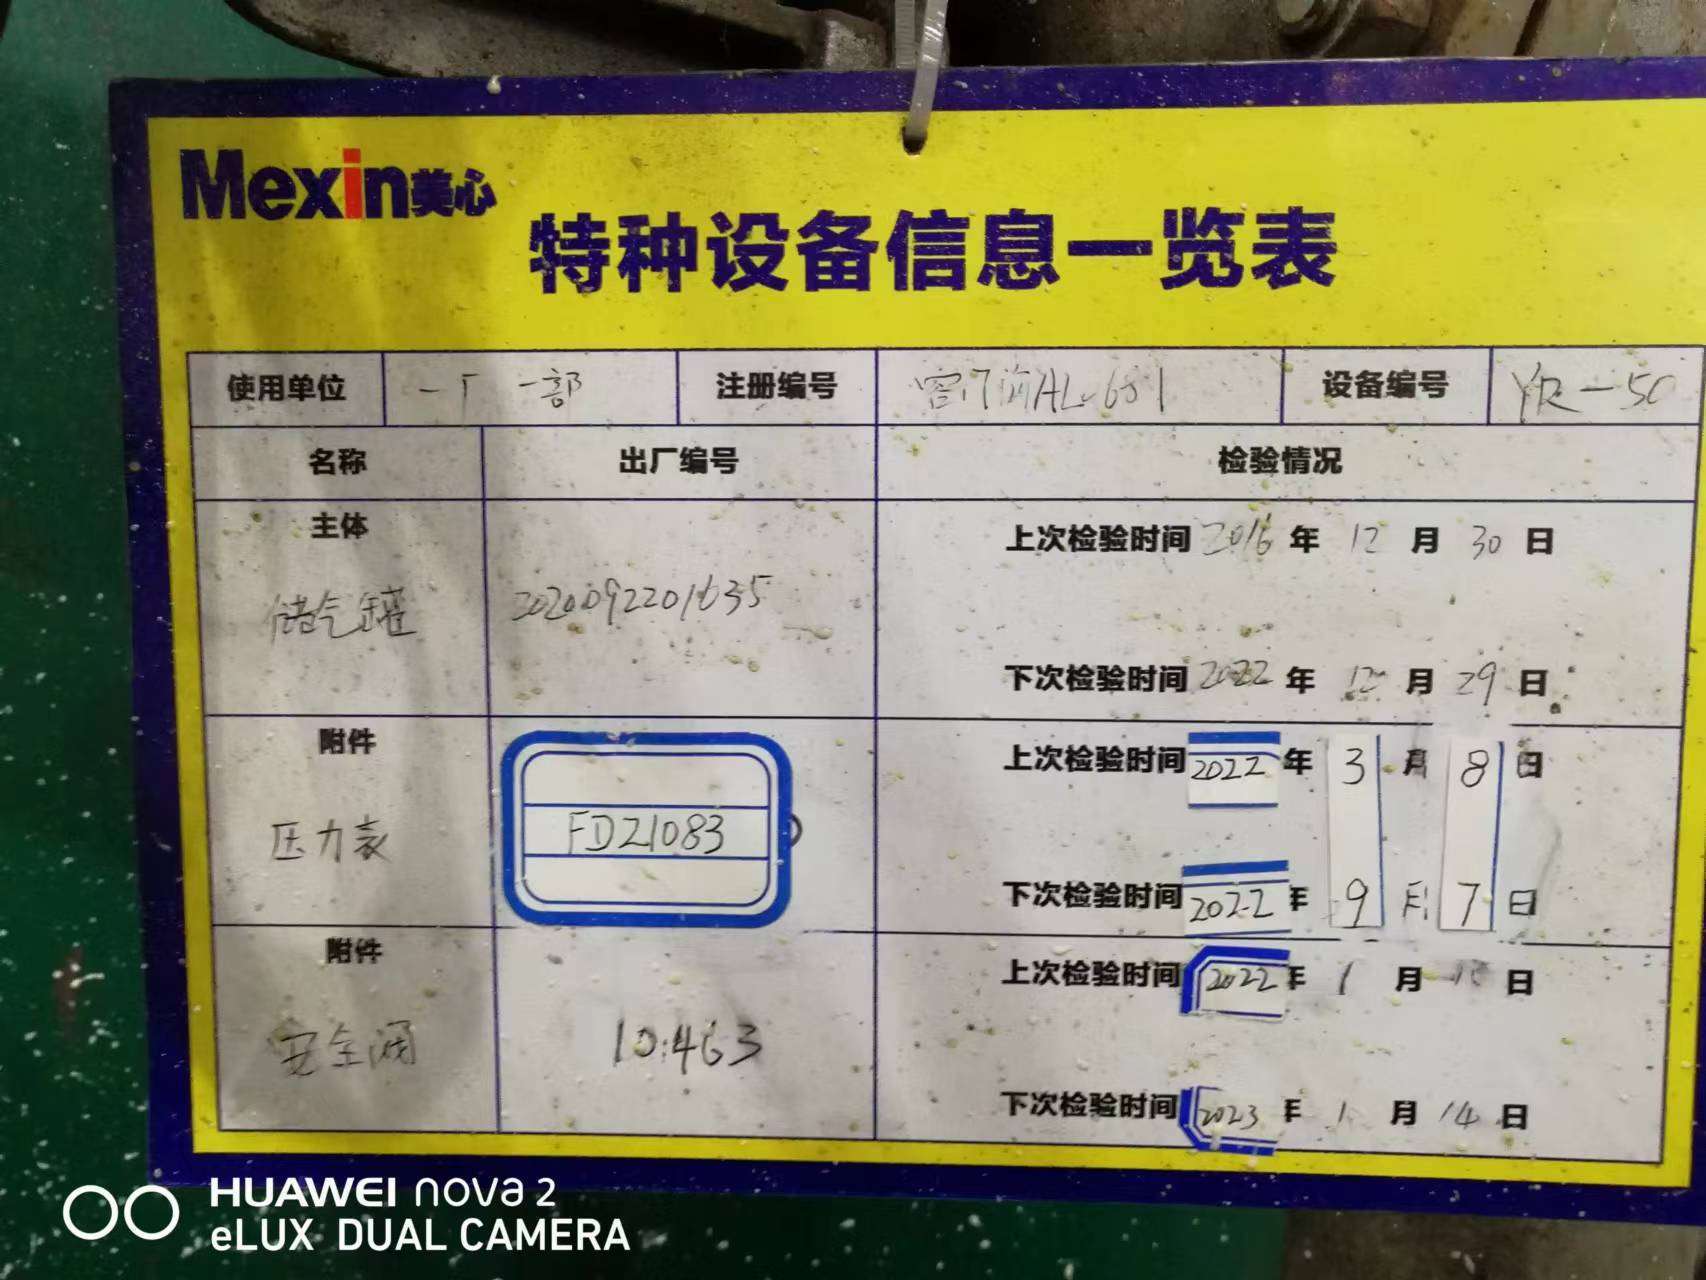 Mexin美心
特种设备信息一览表
使用单位 一厂一部 注册编号 设备编号 YR-50
名称 出厂编号 检验情况
主体
储气罐
2020092201635
上次检验时间 2016年12月30日
下次检验时间 2022年12月29日
附件
压力表
FD21083
上次检验时间 2022年3月8日
下次检验时间 2022年9月7日
附件
安全阀
10.463
上次检验时间 2022年1月15日
下次检验时间 2023年1月14日
HUAWEI nova 2
eLUX DUAL CAMERA